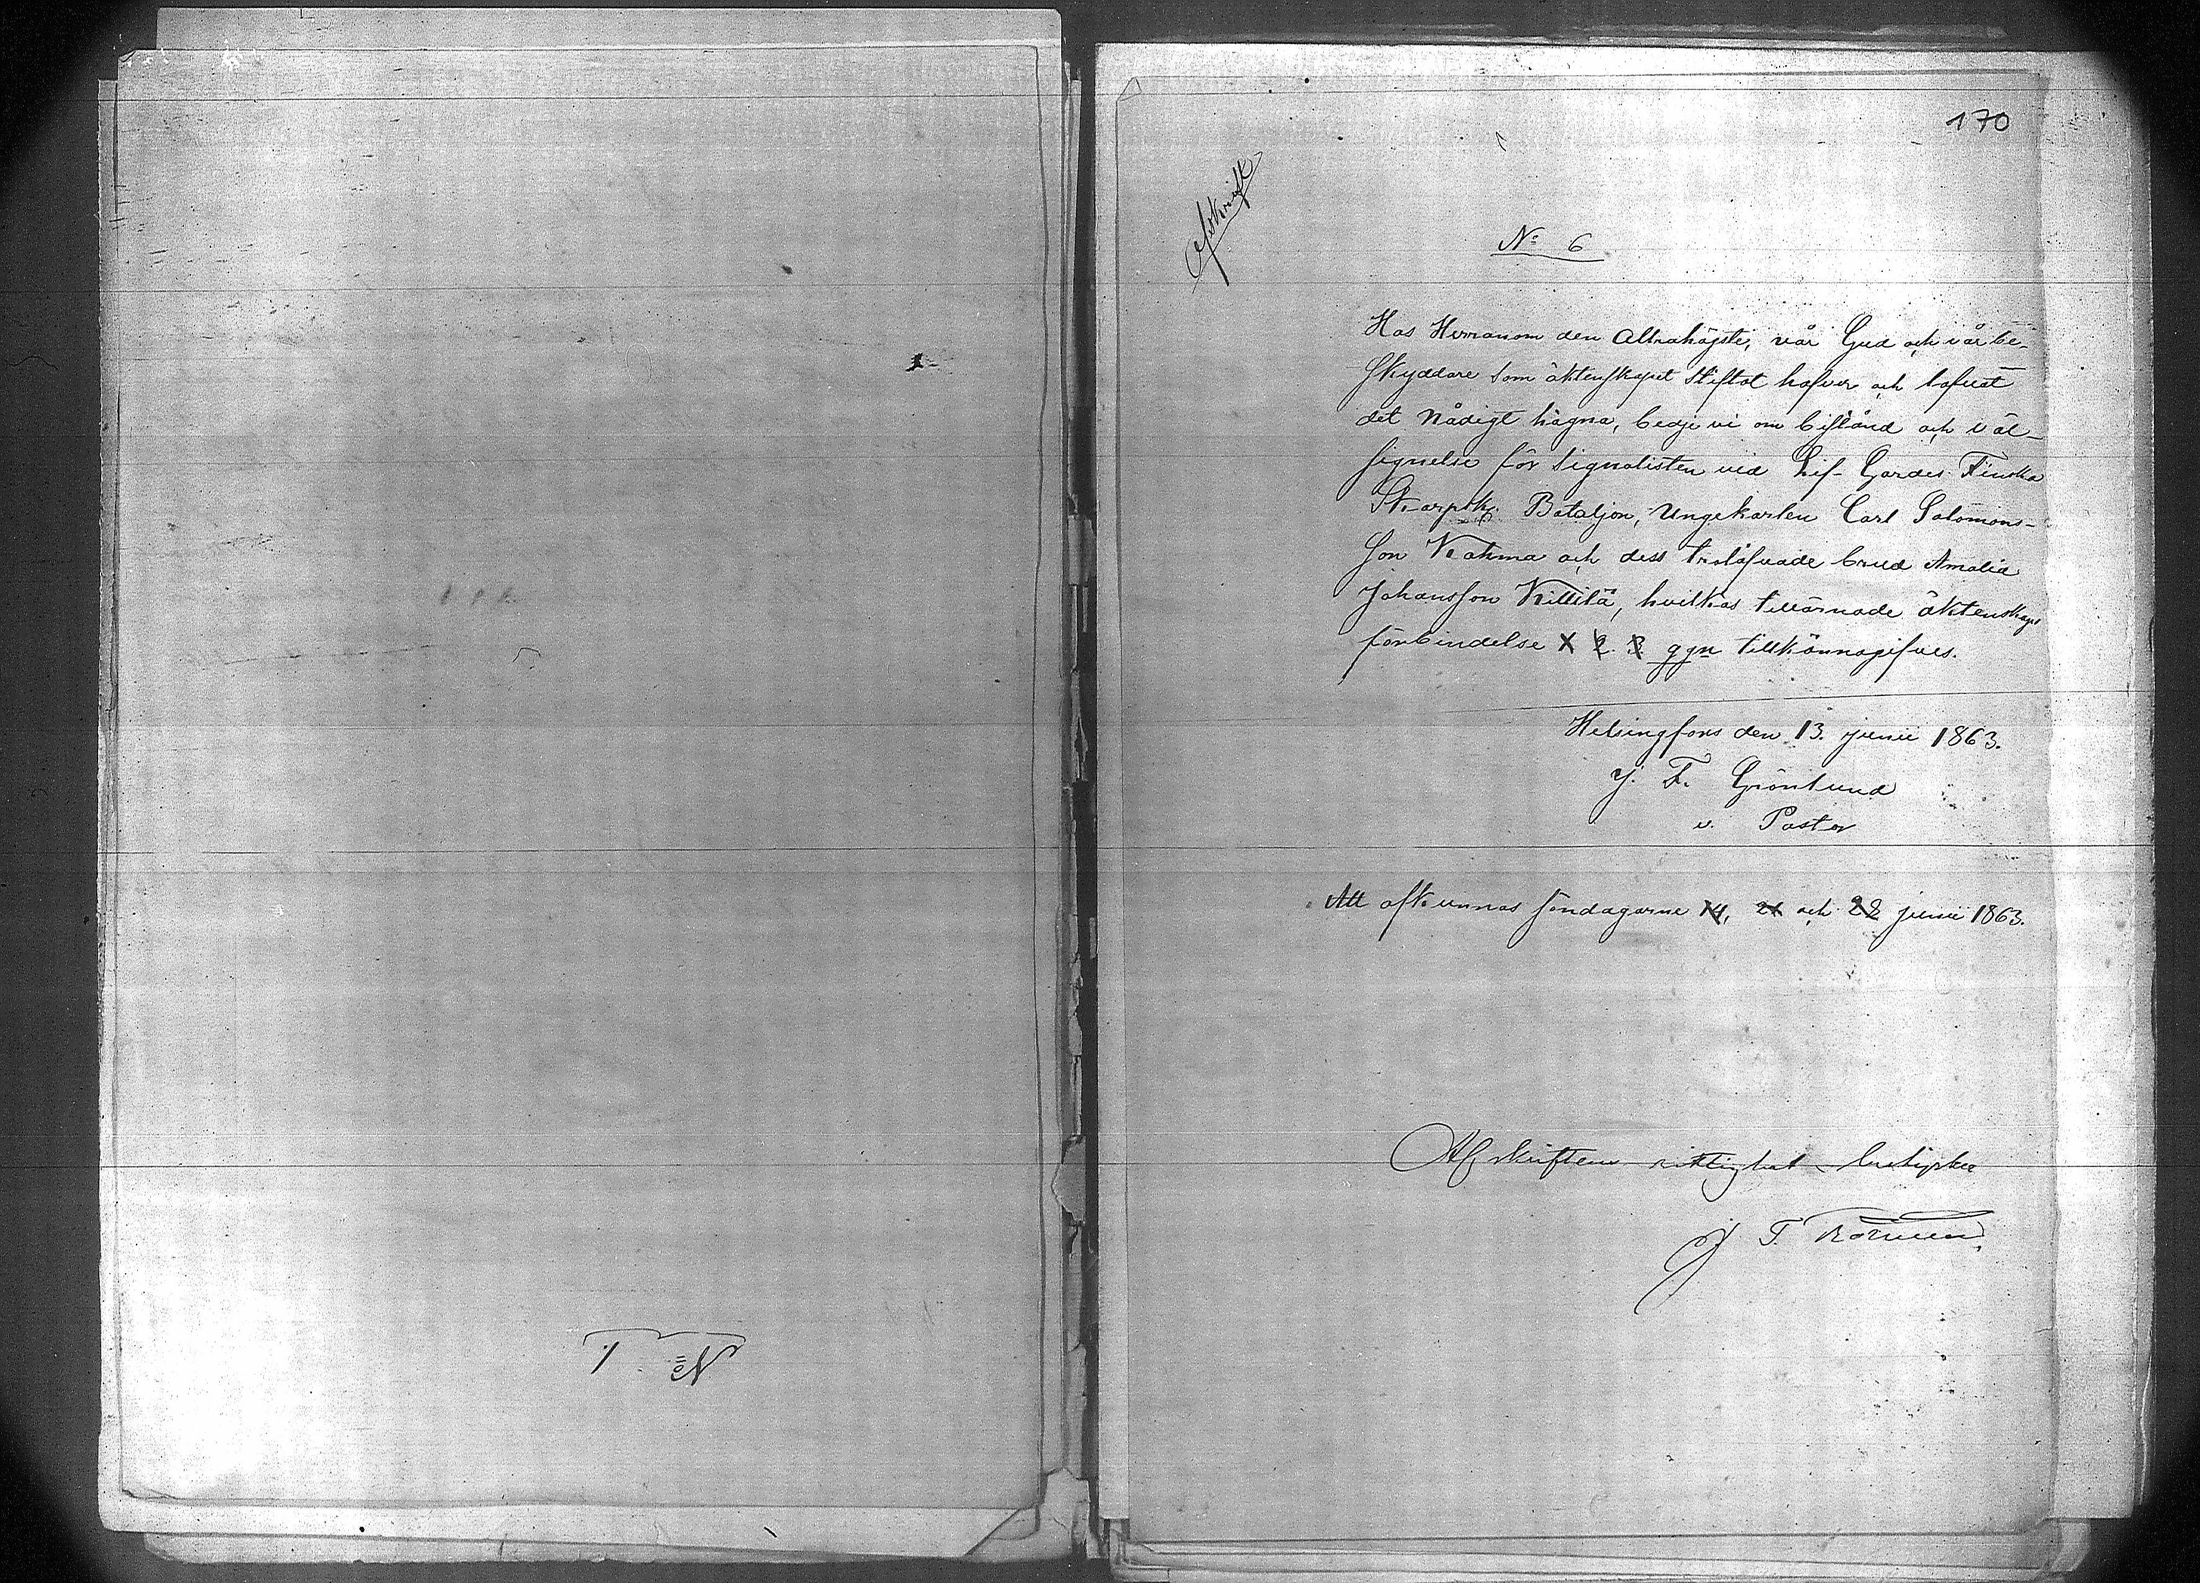 170
Afskrift
No 6
Hos Herranom den Allrahögste, vår Gud och vår be-
skyddare som äktenskapet stiftat hafver och lofvat
det nådigt hägna, bedje vi om bistånd och väl-
signelse för signalisten vid Lif-Gardes Finska
Skarpsk. Bataljon, Ungekarlen Carl Salomons-
son Wahma och dess trolofvade brud Amalia
Johansson Killilä, hvilkas tillärnade äktenskaps
förbindelse 1 2. 3. ggn tillkännagifves.
Helsingfors den 13. junii 1863.
J. F. Grönlund
v. Pastor
Att afkunnas söndagarne 14, 21 och 28 junii 1863.
Afskriftens riktighet betyder
J. F.
No 1